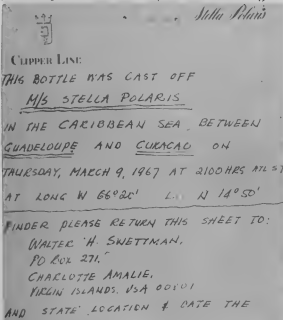 Stella Polaris
CLIPPER LINE
THIS BOTTLE WAS CAST OFF
M/S STELLA POLARIS
IN THE CARIBBEAN SEA, BETWEEN
GUADELOUPE AND CURACAO ON
THURSDAY, MARCH 9, 1967 AT 2100 HRS ATL ST
AT LONG W 66°20' L N 14°50'
FINDER PLEASE RETURN THIS SHEET TO:
WALTER H. SWETTMAN,
PO BOX 271,
CHARLOTTE AMALIE,
VIRGIN ISLANDS, USA 00801
AND STATE LOCATION & DATE THE